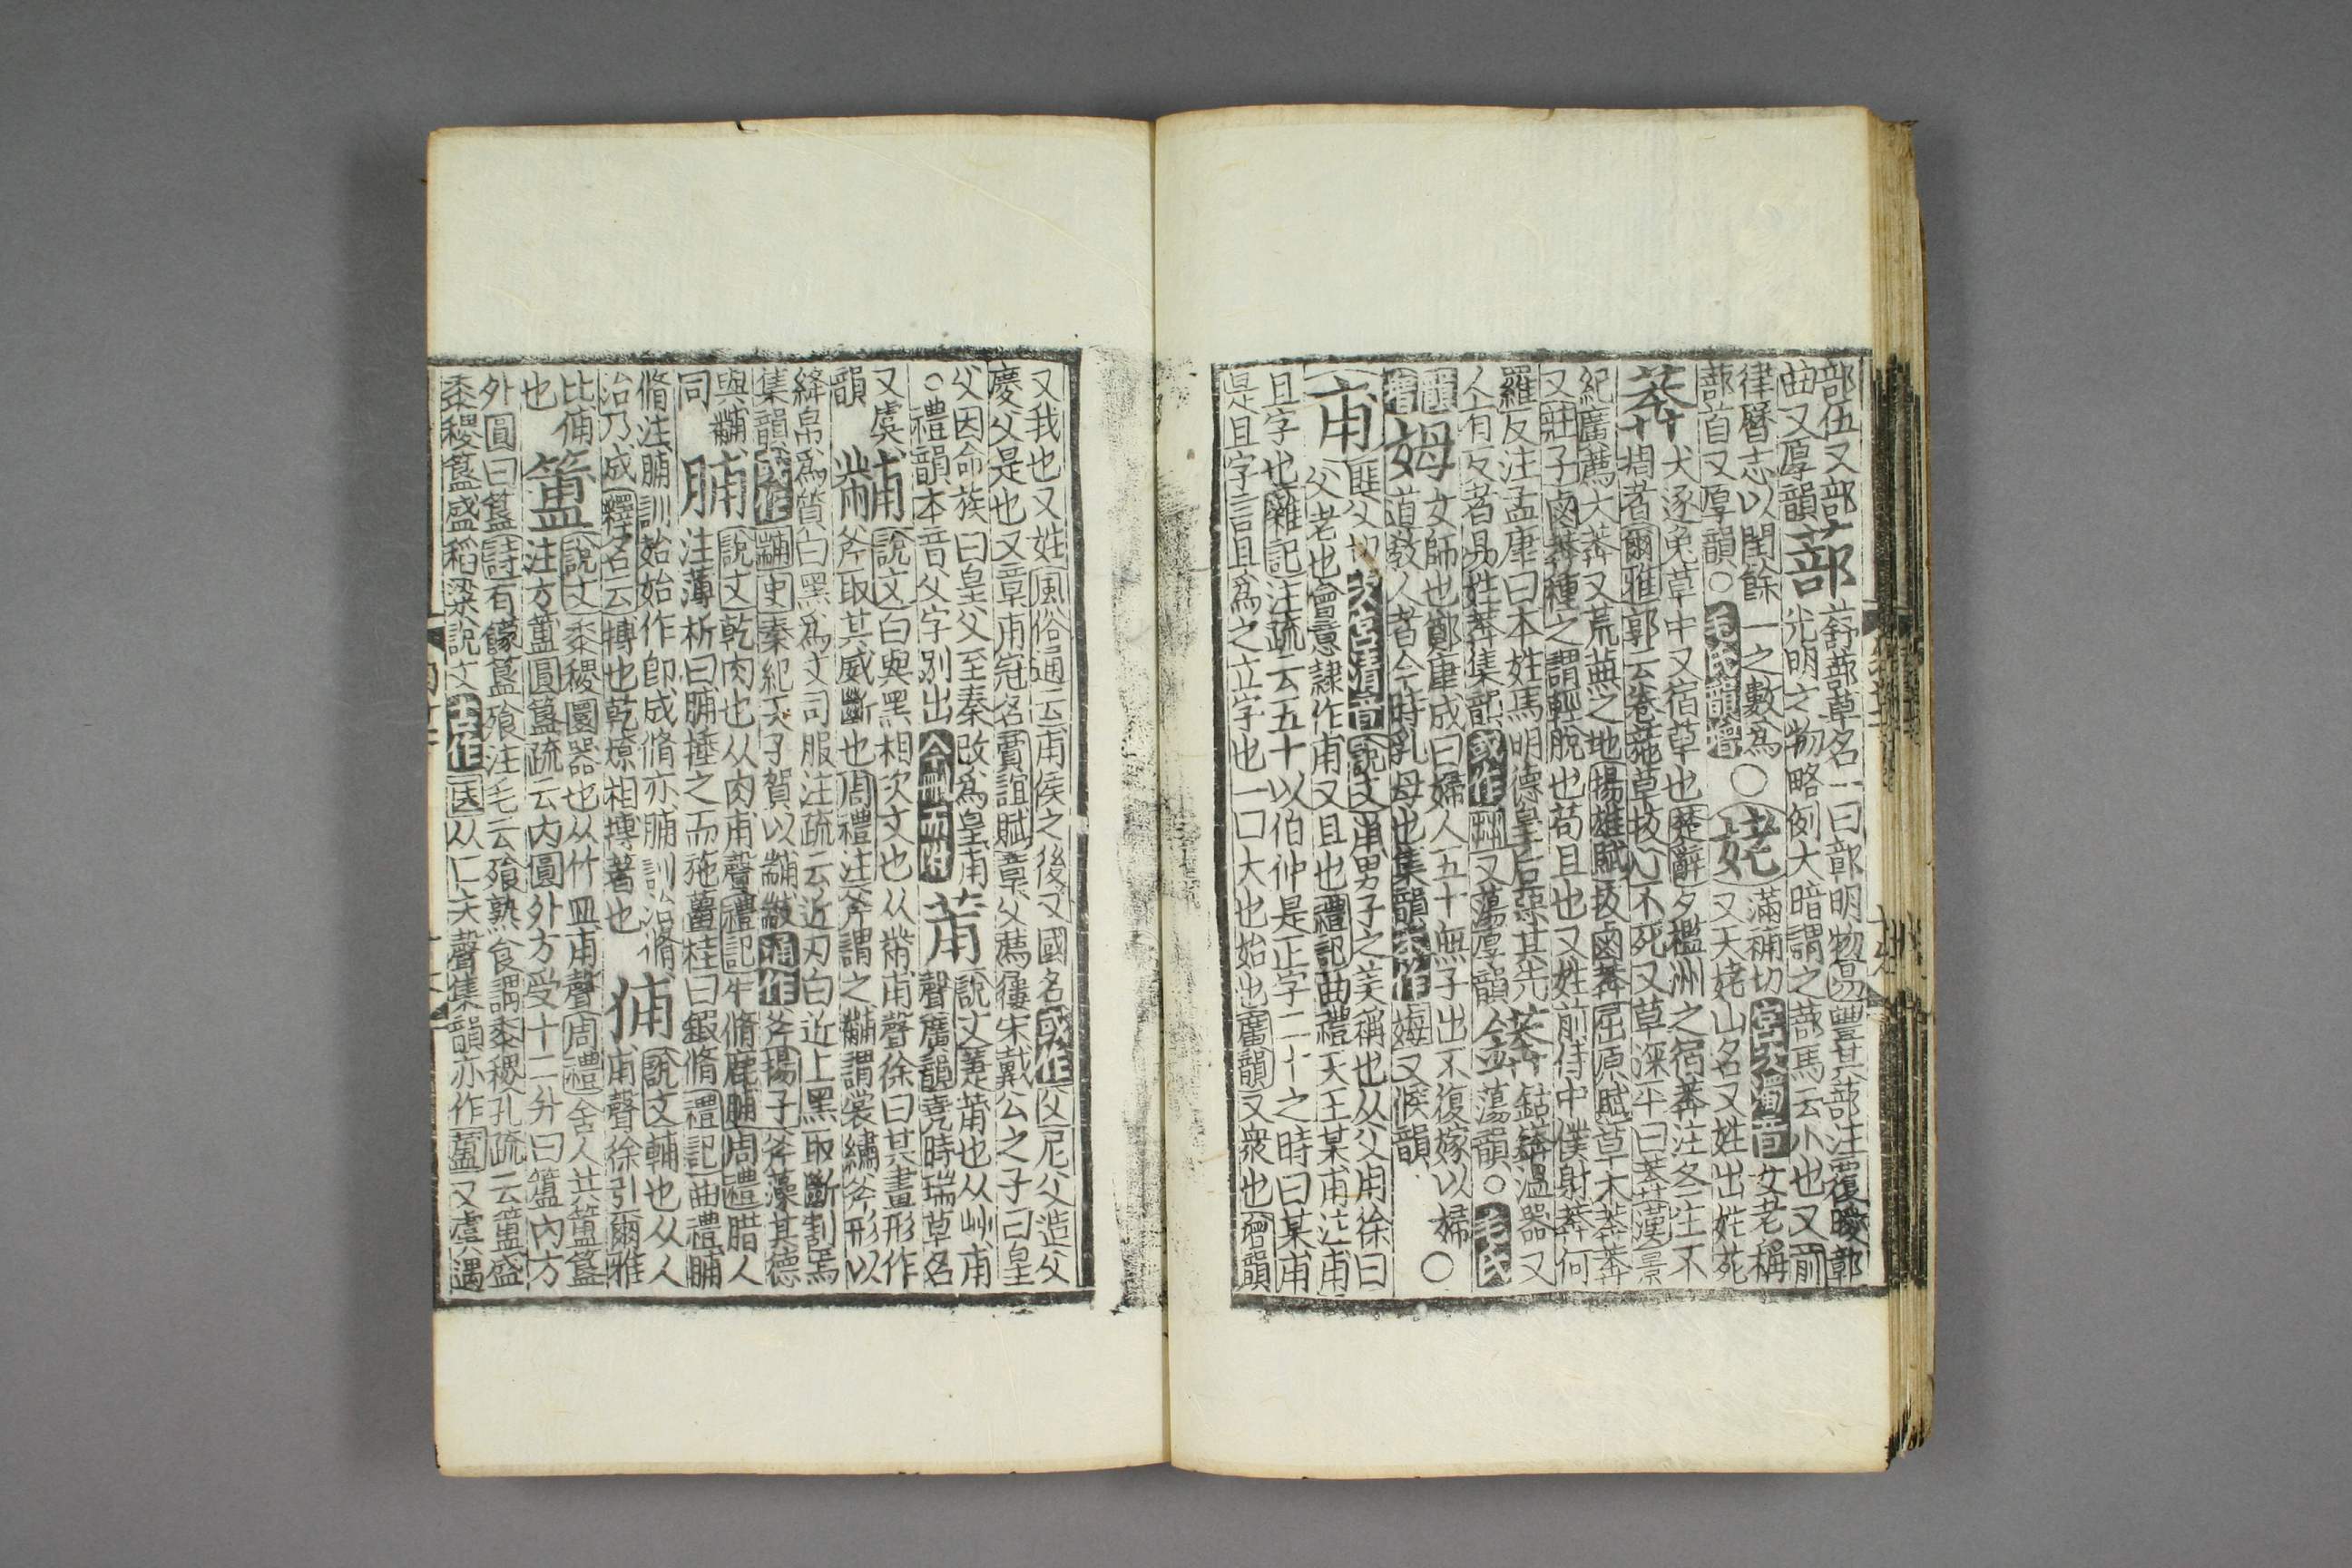 部伍又部
曲又厚韻蔀舒蔀草名一曰蔀明物易豐其蔀注覆曖鄣
光明之物略例大暗謂之蔀馬云小也又前
律曆志以閏餘一之數爲
蔀首又厚韻○毛氏韻增○姥滿補切宮次濁音女老稱
又天姥山名又姓出姓苑
莽犬逐兔草中又宿草也楚辭夕檻洲之宿莽注冬生不
枯者爾雅郭云卷葹草拔心不死又草深平曰莽莽漢景
紀廣薦大莽又荒蕪之地揚雄賦拔鹵莽屈原賦草木莽莽
又莊子鹵莽種之謂輕脫也苟且也又姓前侍中僕射莽何
羅反注孟康曰本姓馬明德皇后惡其先
人有反者易姓莽集韻或作茻又蕩厚韻鈷䥈溫器又
蕩韻○毛氏
韻增姆女師也鄭康成曰婦人五十無子出不復嫁以婦
道敎人者今時乳母也集韻本作娒又候韻○
甫匪父切次宮清音說文甫男子之美稱也从父用徐曰
父老也會意隷作甫又且也禮記曲禮天王某甫注甫
且字也雜記注疏云五十以伯仲是正字二十之時曰某甫
是且字言且爲之立字也一曰大也始也廣韻又衆也增韻
又我也又姓風俗通云甫侯之後又國名或作父尼父造父
慶父是也又章甫冠名賈誼賦章父薦屨宋戴公之子曰皇
父因命族曰皇父至秦改爲皇甫
○禮韻本音父字別出今刪而附莆說文萐莆也从艸甫
聲廣韻堯時瑞草名
又虞
韻黼說文白與黑相次文也从黹甫聲徐曰其畫形作
斧取其威斷也周禮注斧謂之黼謂裳繡斧形以
絳帛爲質白黑爲文司服注疏云近刃白近上黑取斷割焉
集韻或作䩉史秦紀天子賀以黼黻通作斧揚子斧藻其德
與黼
同脯說文乾肉也从肉甫聲禮記牛脩鹿脯周禮腊人
注薄析曰脯捶之而施薑桂曰鍛脩禮記曲禮脯
脩注脯訓始始作卽成脩亦脯訓治脩
治乃成釋名云搏也乾燥相搏著也俌說文輔也从人
甫聲徐引爾雅
比俌
也簠說文黍稷圜器也从竹皿甫聲周禮舍人共簠簋
注方簠圓簋疏云內圓外方受十二升曰簠內方
外圓曰簋詩有饛簋飱注毛云飱熟食謂黍稷孔疏云簠盛
黍稷簋盛稻粱說文古作医从匚夫聲集韻亦作䀇又虞遇